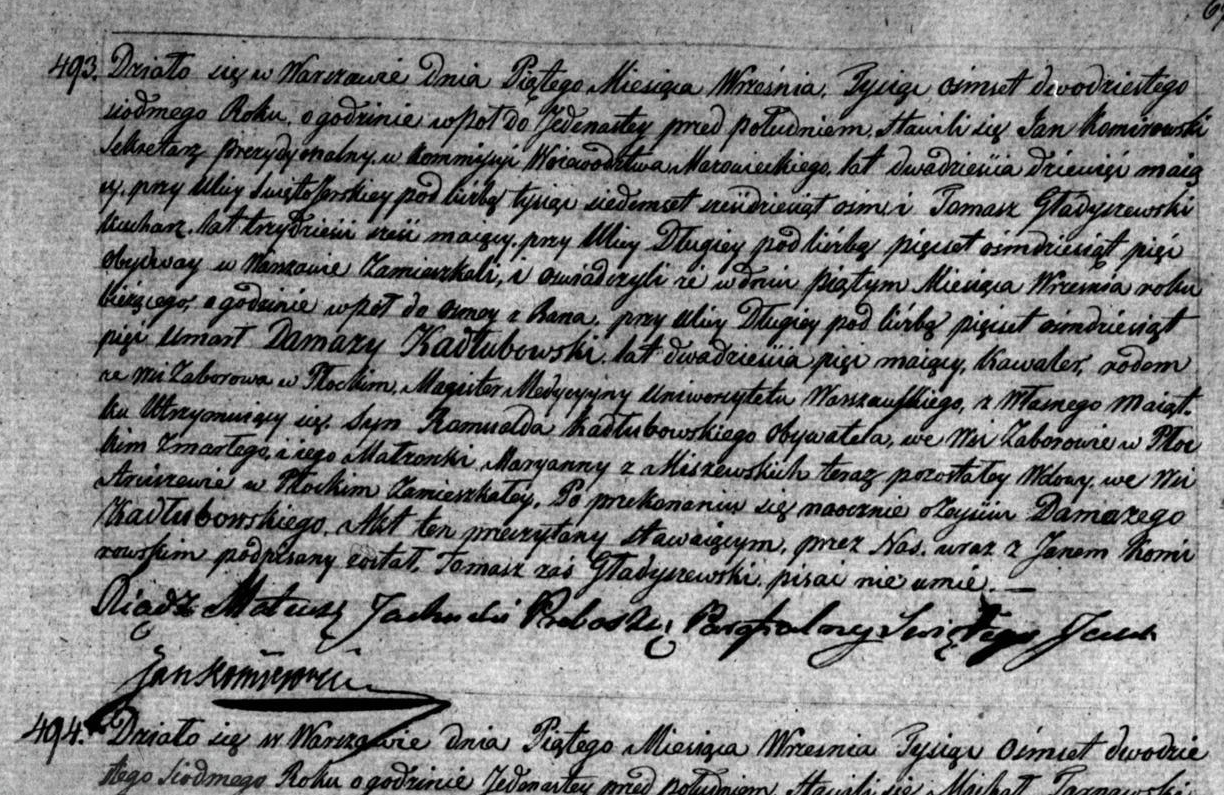 493. Działo się w Warszawie dnia Piątego Miesiąca Września, Tysiąc ośmset dwodziestego
siodmego Roku, o godzinie wpoł do Jedenastey przed południem, Stawili się Jan Komirowski
Sekretarz Prezydyonalny w Kommissyi Woiewodztwa Mazowieckiego, lat dwadzieścia dziewięć maią
cy, przy Ulicy Swiętojerskiey pod liczbą tysiąc siedemset sześćdziesiąt ośm i Tomasz Gładyszewski
kucharz, lat trzydzieści sześć maiący, przy Ulicy Długiey pod liczbą pięcset ośmdziesiąt pięć
obydway w Warszawie Zamieszkali, i oświadczyli że w dniu piątym Miesiąca Września roku
bieżącego, o godzinie wpoł do osmey z Rana, przy ulicy Długiey pod liczbą pięcset ośmdziesiąt
pięć Umarł Damazy Kadłubowski, lat dwadzieścia pięć maiący, Kawaler, rodem
ze wsi Zaborowa w Płockim, Magister Medycyny Uniwersytetu Warszawskiego, z Własnego maiąt-
ku Utrzymuiący się, Syn Ramualda Kadłubowskiego Obywatela, we Wsi Zaborowie w Płoc
kim Zmarłego, i iego Małżonki Maryanny z Miszewskich teraz pozostałey Wdowy, we Wsi
w Płockim Zamieszkałey. Po przekonaniu się naocznie o Zeyściu Damazego
Kadłubowskiego, Akt ten przeczytany stawaiącym, przez Nas, wraz z Janem Komi
rowskim podpisany został, Tomasz zaś Gładyszewski, pisać nie umie. —
Xiądz Mateusz Proboszcz Parafialny Świętego
Jan Komirowski
494. Działo się w Warszawie dnia Piątego Miesiąca Września Tysiąc Ośmset dwodzie
stego Siodmego Roku o godzinie Jedenastey przed południem, Stawili się Michał Tarnawski